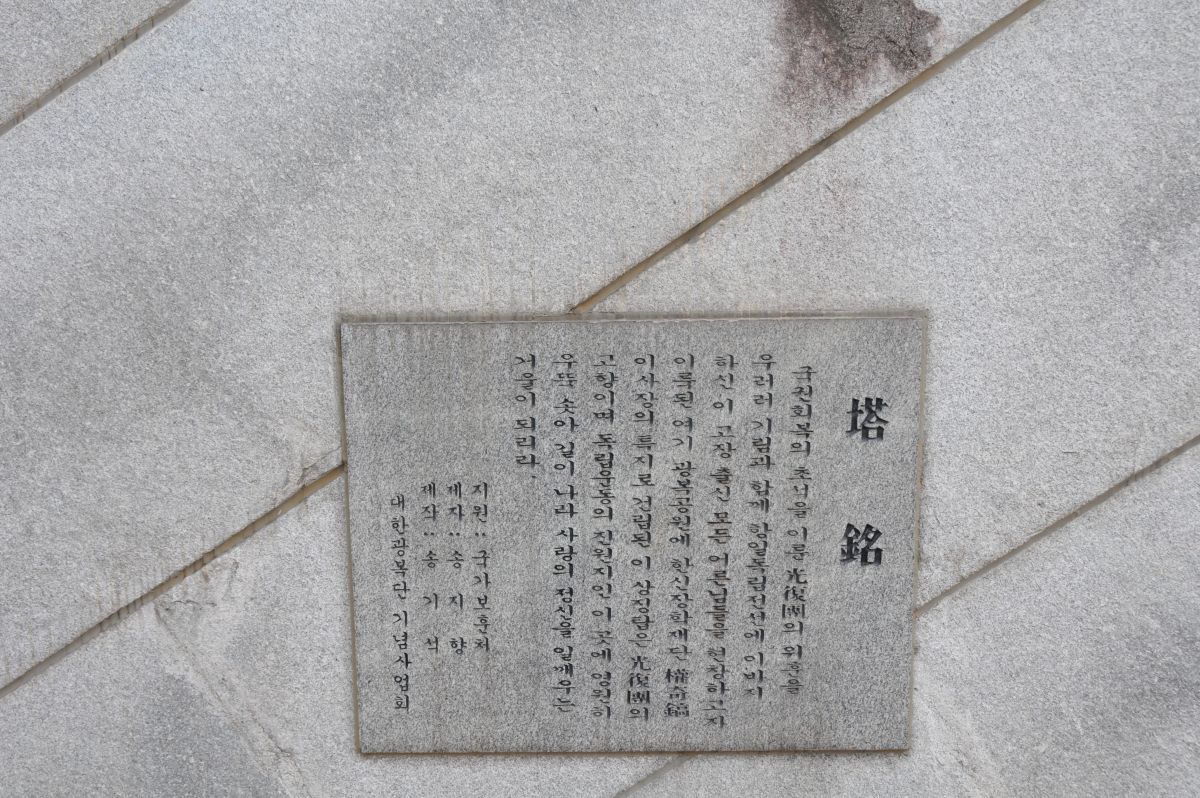 塔 銘
국권회복의 초석을 이룬 光復團의 위훈을
우러러 기림과 함께 항일독립전선에 이바지
하신 이 고장 출신 모든 어른님들을 현창하고자
이룩된 여기 광복공원에 한신장학재단
이사장의 특지로 건립된 이 상징탑은 光復團의
고향이며 독립운동의 진원지인 이 곳에 영원히
우뚝 솟아 길이 나라 사랑의 정신을 일깨우는
거울이 되리라.
지원 : 국가보훈처
제자 : 송 지 향
제작 : 송 기 석
대한광복단 기념사업회